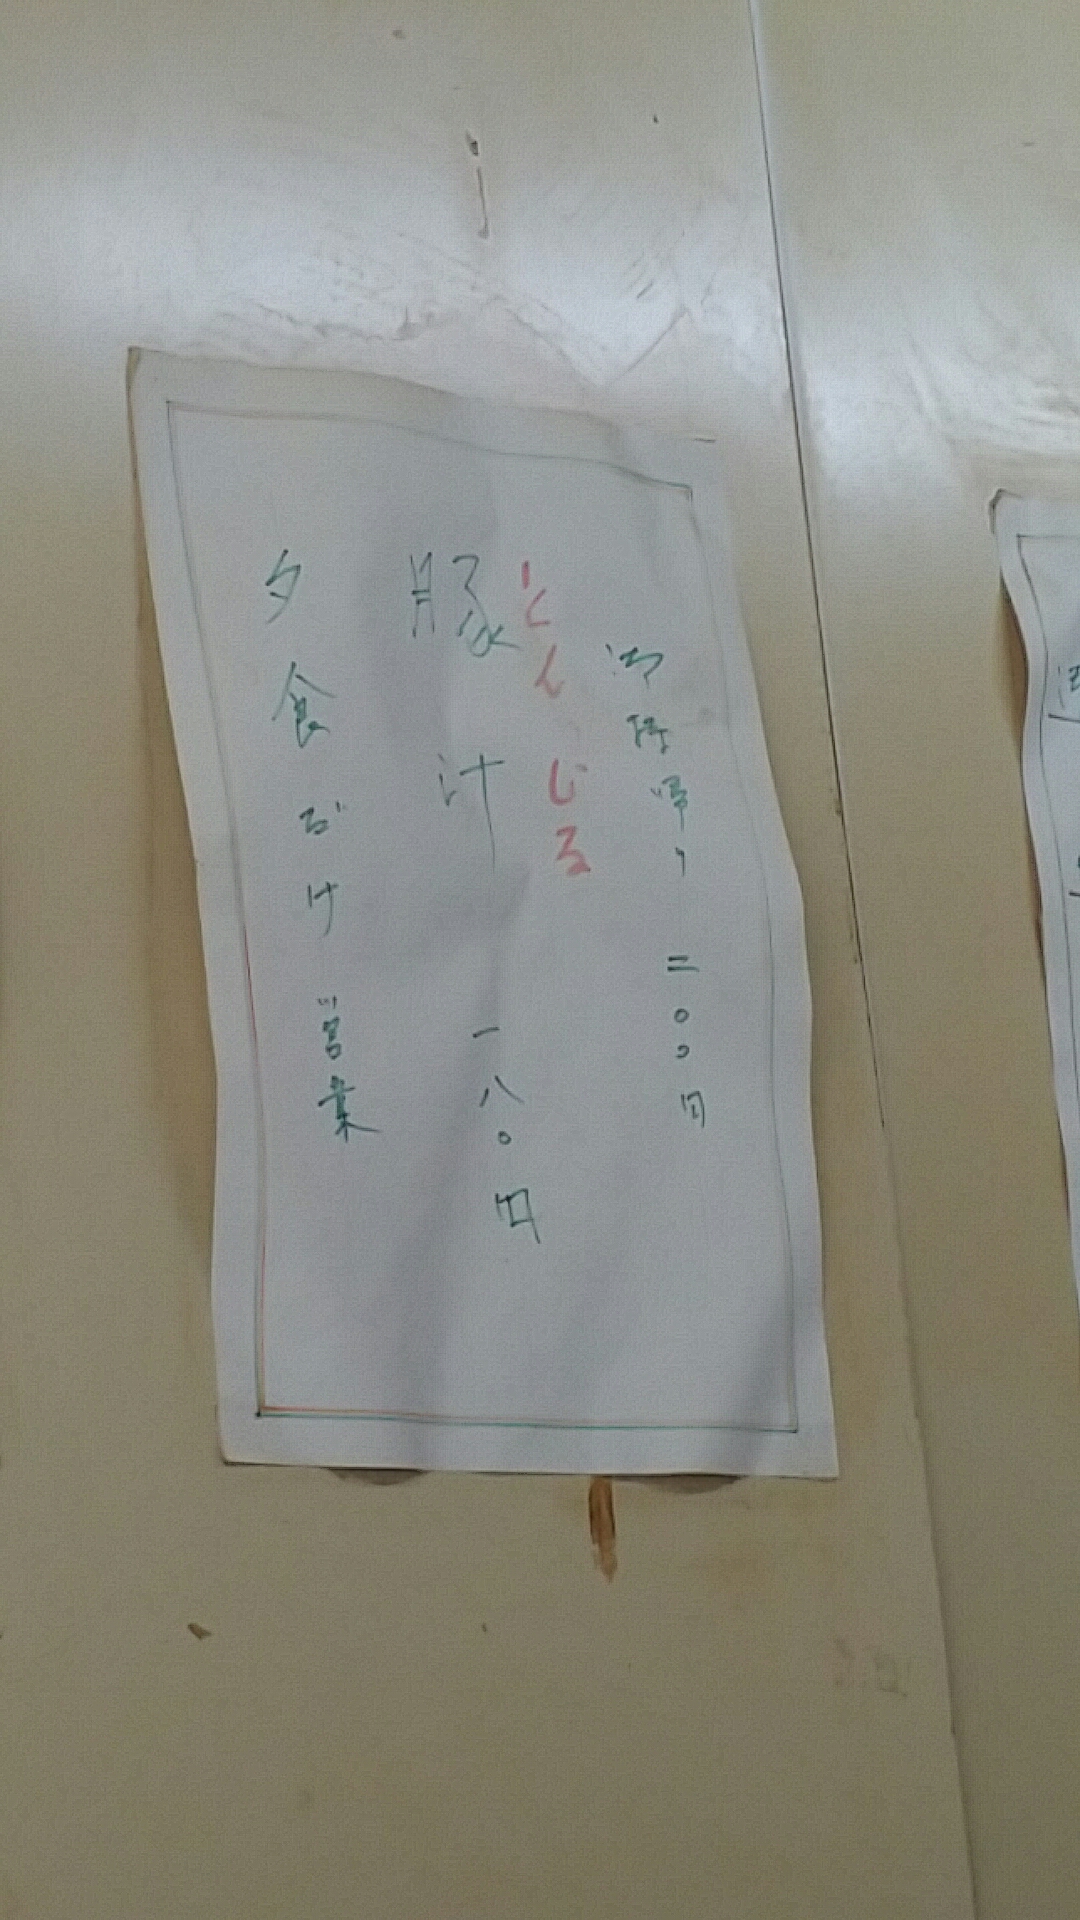 御持帰り 二〇〇円
とんじる
豚汁 一八〇円
夕食だけ営業